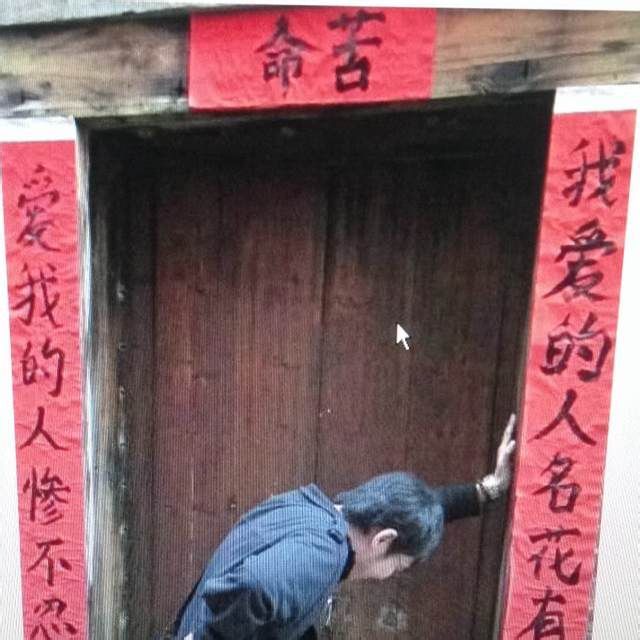 苦命
我爱的人名花有
爱我的人惨不忍